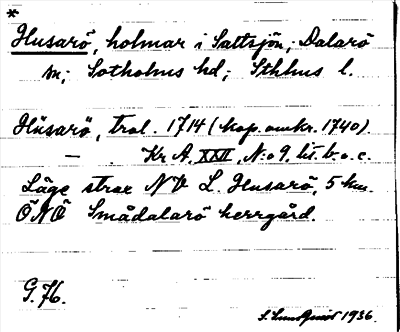 *
Husarö, holmar i Saltsjön, Dalarö
sn; Sotholms hd; Sthlms l.
Hüsarö, trol. 1714 (kop. omkr. 1740).
— Kr A, XXII, N:o 9, lit. b. o. c.
Läge strax NV L. Husarö, 5 km.
ÖNÖ Smådalarö herrgård.
G. 76.
S. Lundquist 1936.